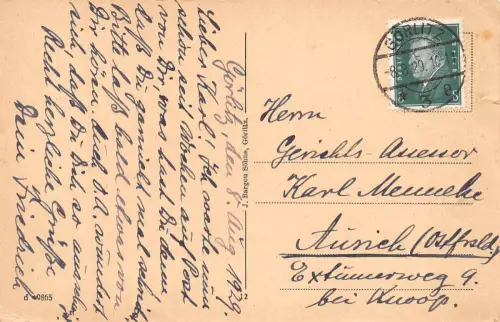 Görlitz, den 8. Aug. 1929.
Lieber Karl! Ich warte nun
schon seit Wochen auf Post
von Dir, was hast Du denn
daß Du gar nicht mal schreibst
Bitte laß bald etwas von
Dir hören. Auch O.A. wundert
sich, daß Du Dich so ausschweigst
Recht herzliche Grüße
Dein Friedrich
J. Bargou Söhne, Görlitz.
d 9865
32
GÖRLITZ
Herrn
Gerichts-Assessor
Karl Menneke
Aurich (Ostfrsld.)
Extumerweg 9.
bei Knoop.